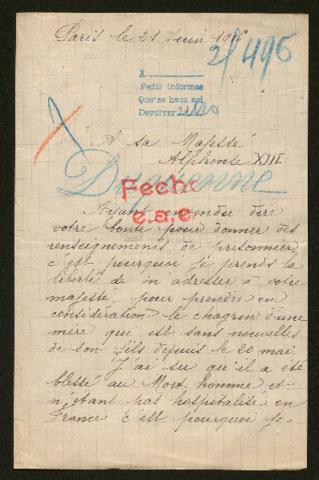 Paris le 21 Juin 191
2/495
A
Pedir informes
Que se haga así
Devolver
A sa Majesté
Alphonse XIII
Duquenne
Fecho
e.a.e.
Ayant entendu dire
votre bonté pour donner des
renseignements de prisonnier,
c'est pourquoi je prends la
liberté de m adresser à votre
majesté pour prendre en
considération le chagrin d'une
mère qui est sans nouvelles
de son fils depuis le 20 mai
J'ai su que il a été
blessé au Mort homme et
n'étant pas hospitalisé en
France c'est pourquoi je